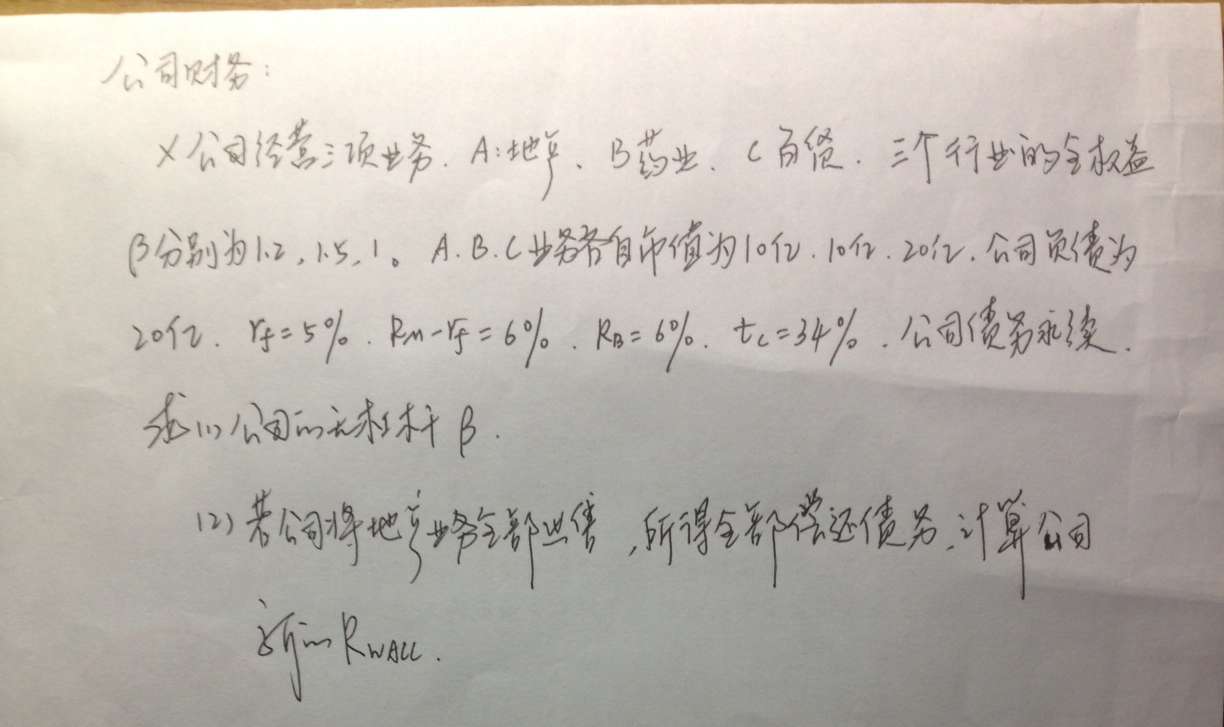 公司财务:
X公司经营三项业务. A:地产、B药业、C百货. 三个行业的全权益
β分别为1.2, 1.5, 1。A.B.C业务各自市值为10亿.10亿.20亿.公司负债为
20亿. rf=5%. RM-rf=6%. RB=6%. tc=34%. 公司债务永续.
求(1)公司的无杠杆β.
(2)若公司将地产业务全部出售,所得全部偿还债务,计算公司
新的RWACC.